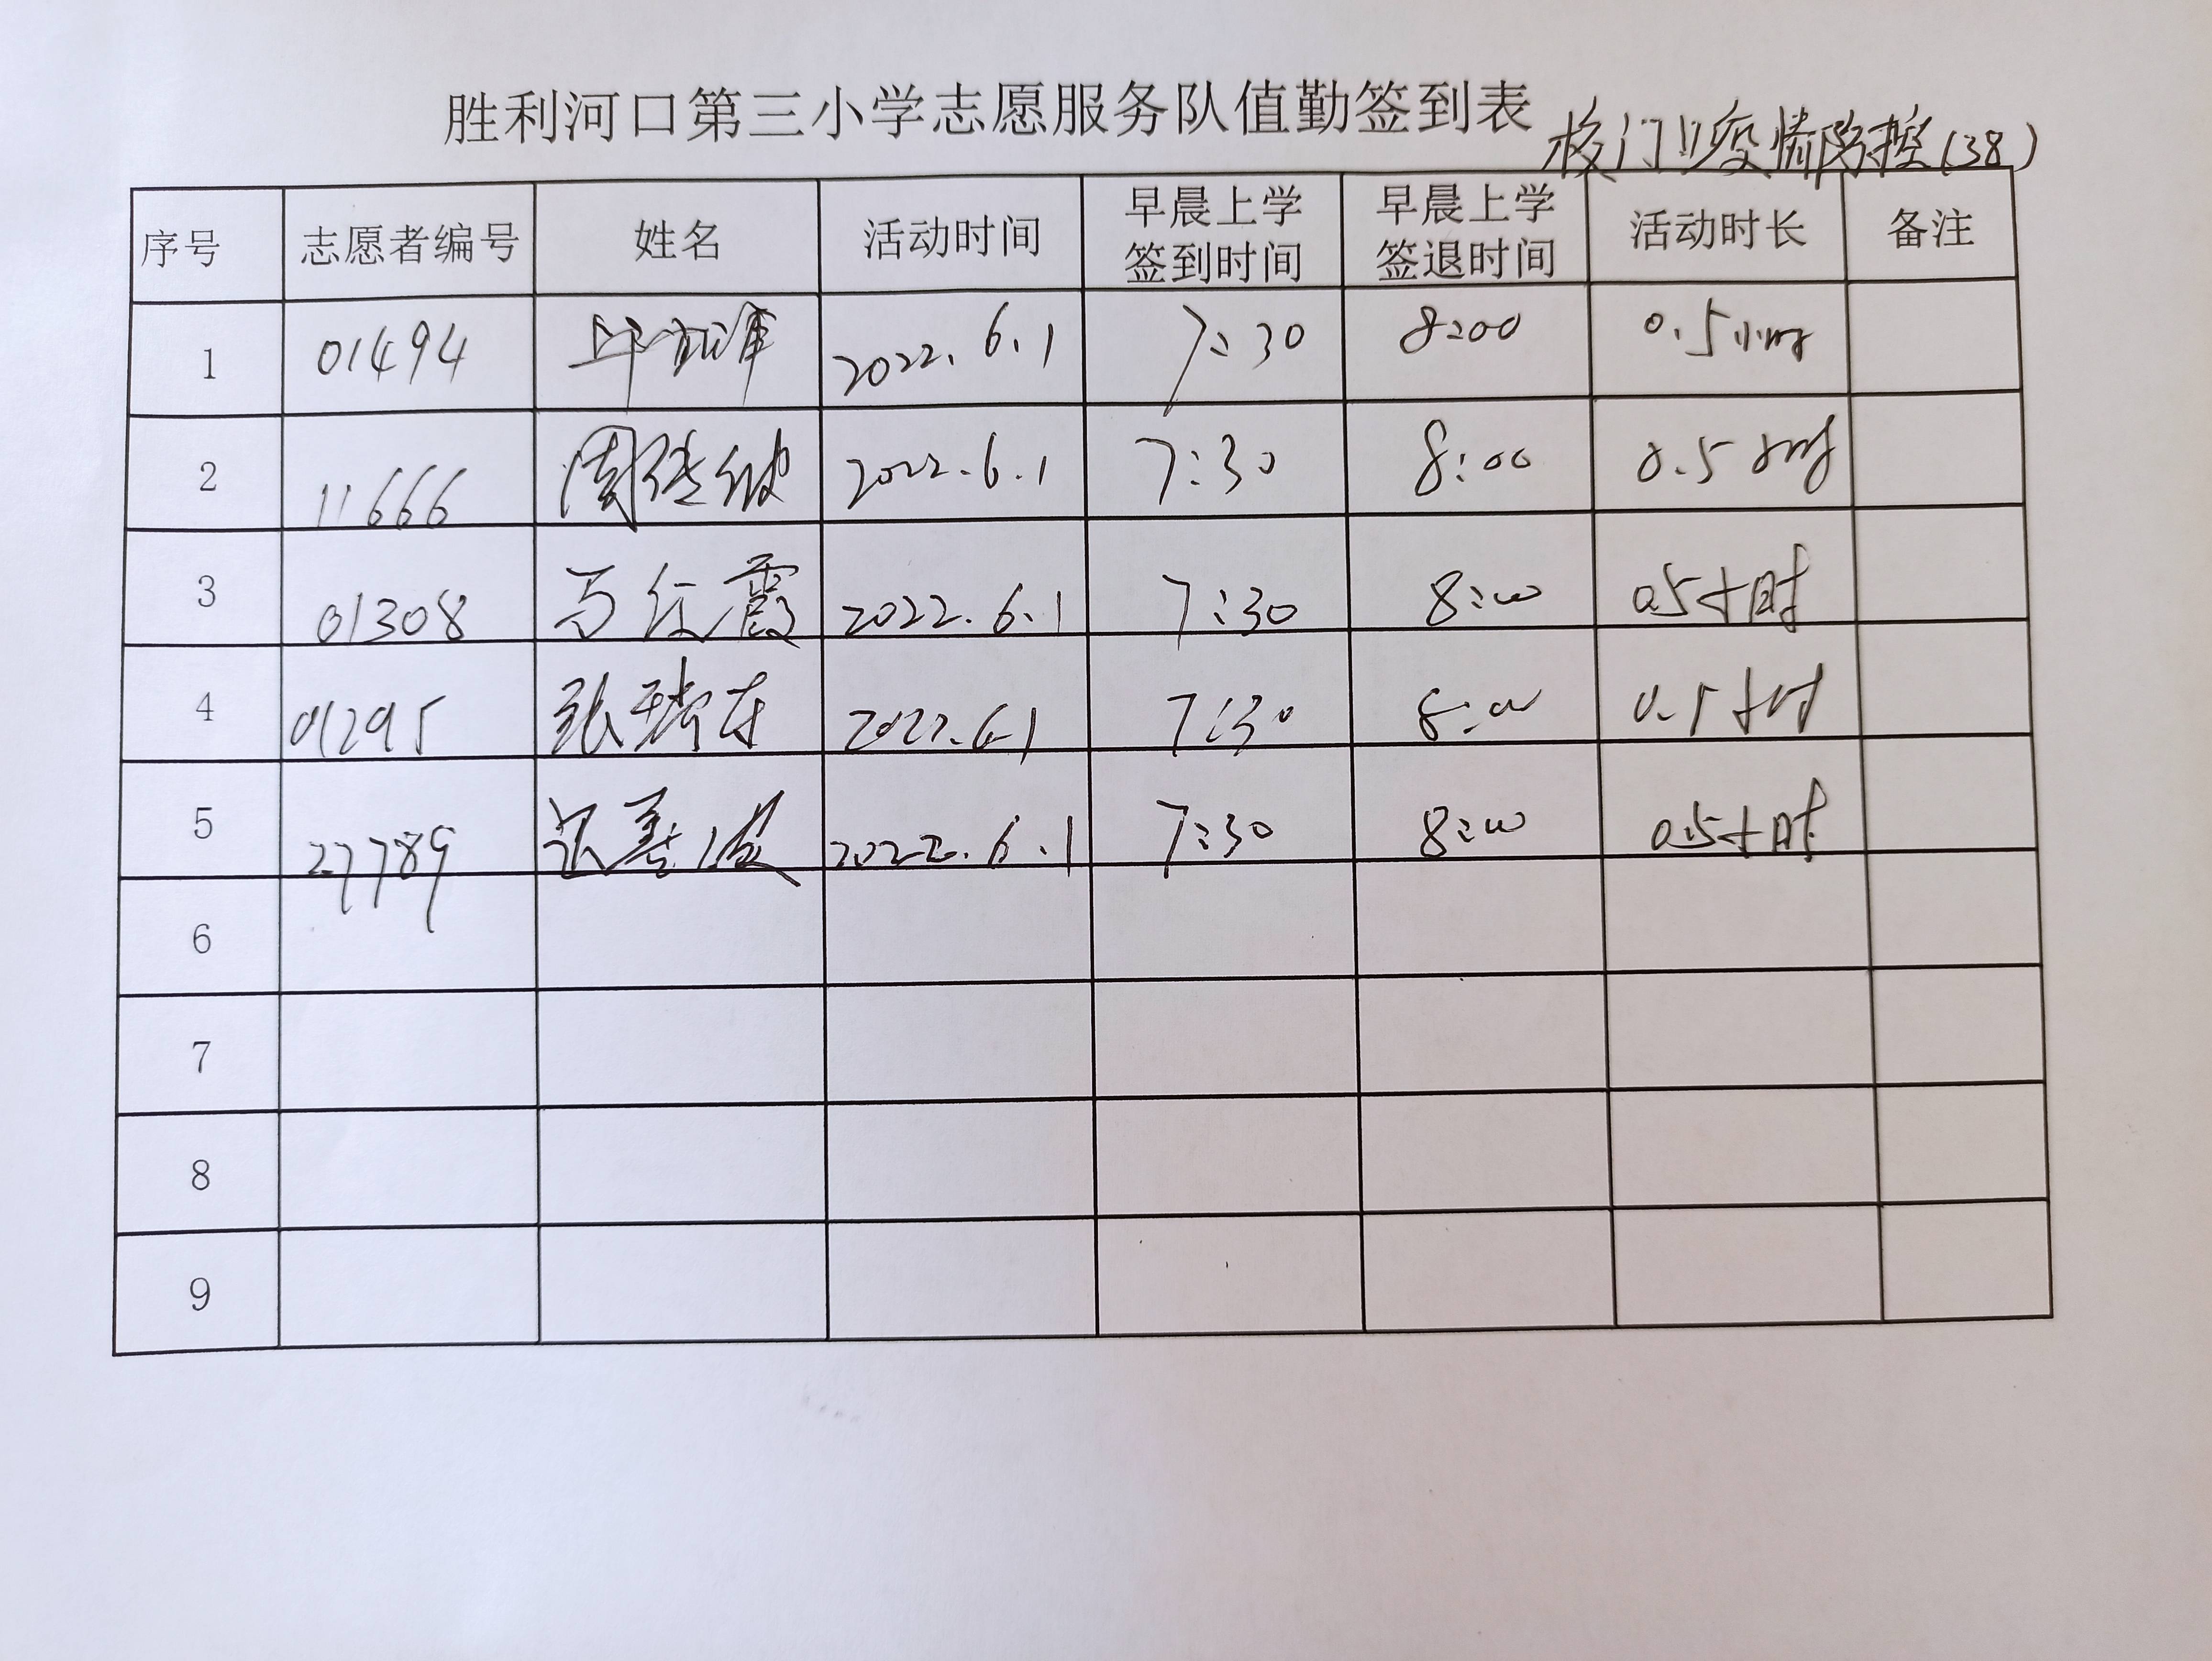 胜利河口第三小学志愿服务队值勤签到表 校门口疫情防控(38)
序号 志愿者编号 姓名 活动时间 早晨上学签到时间 早晨上学签退时间 活动时长 备注
1 01494 2022.6.1 7:30 8:00 0.5小时
2 11666 2022.6.1 7:30 8:00 0.5小时
3 01308 马红霞 2022.6.1 7:30 8:00 0.5小时
4 01295 张瑞东 2022.6.1 7:30 8:00 0.5小时
5 27789 2022.6.1 7:30 8:00 0.5小时
6
7
8
9